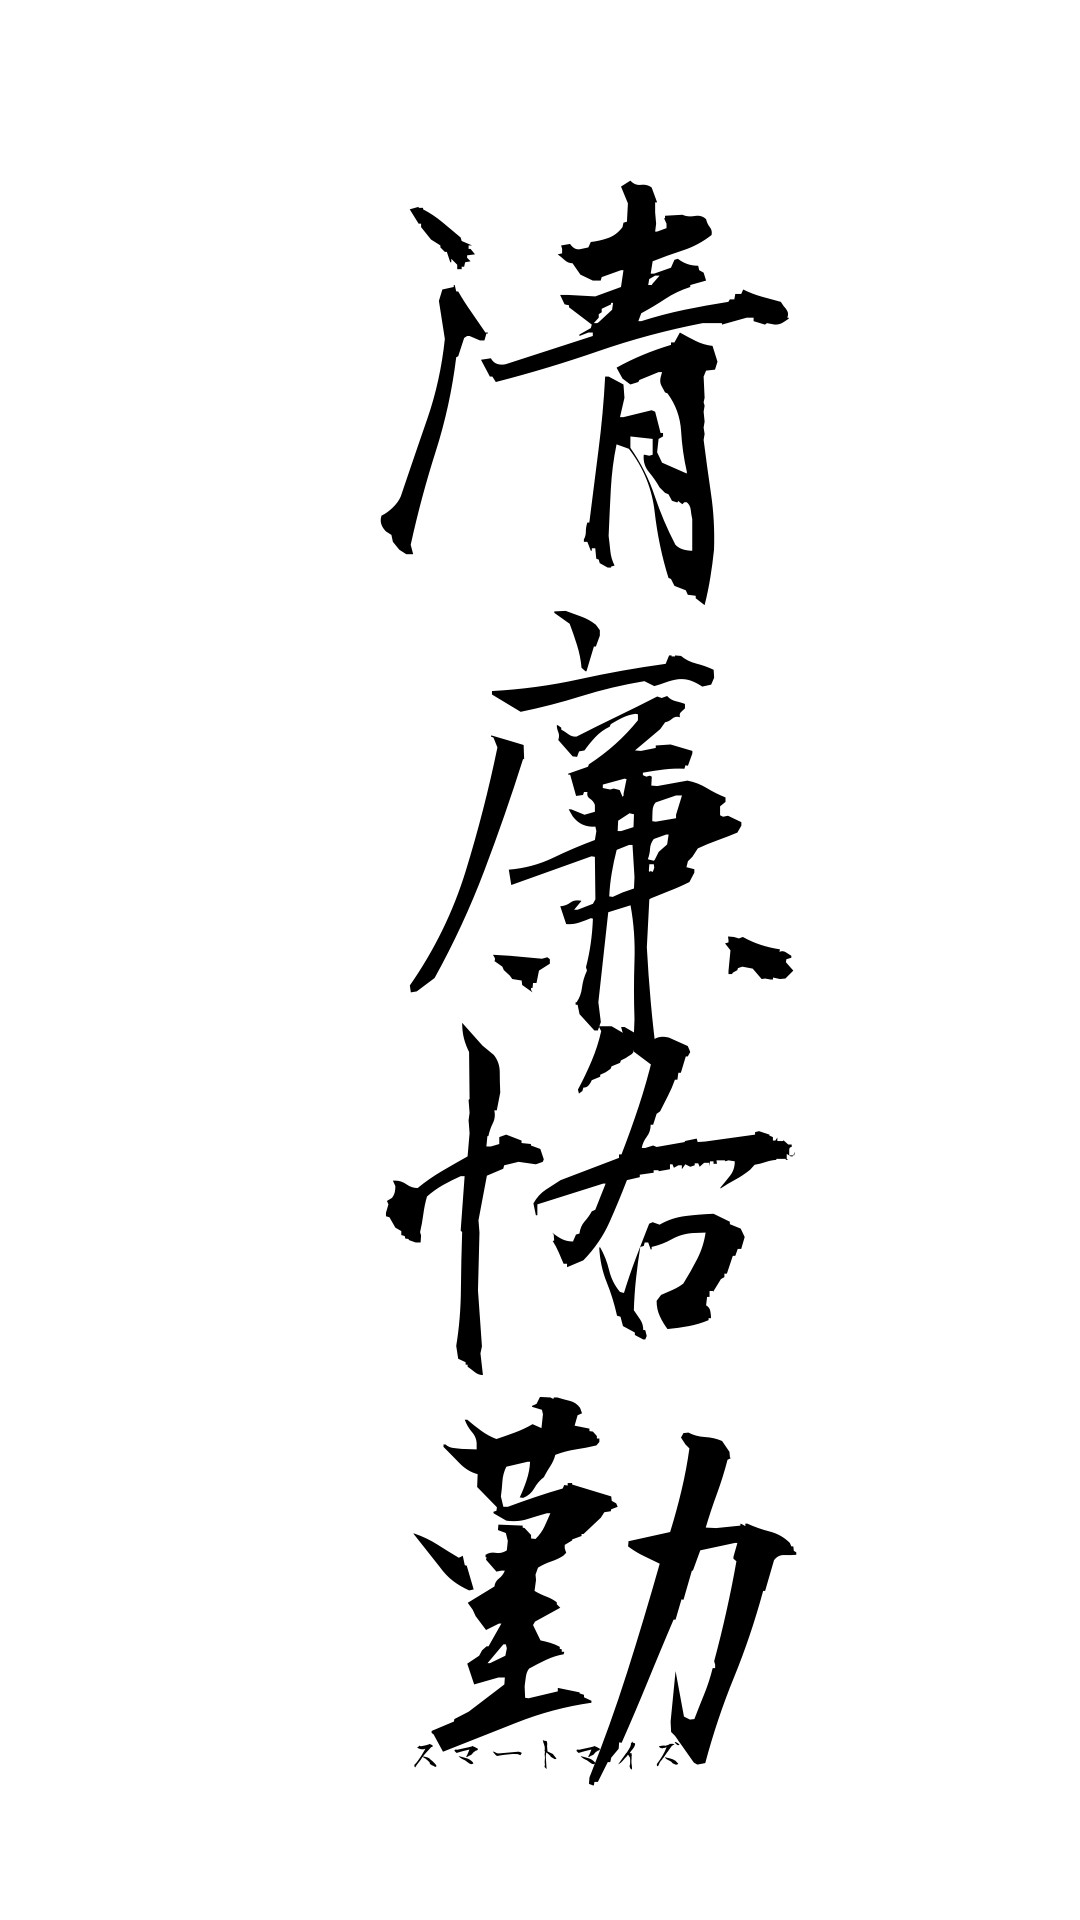 清廉恪勤
スマートマイズ